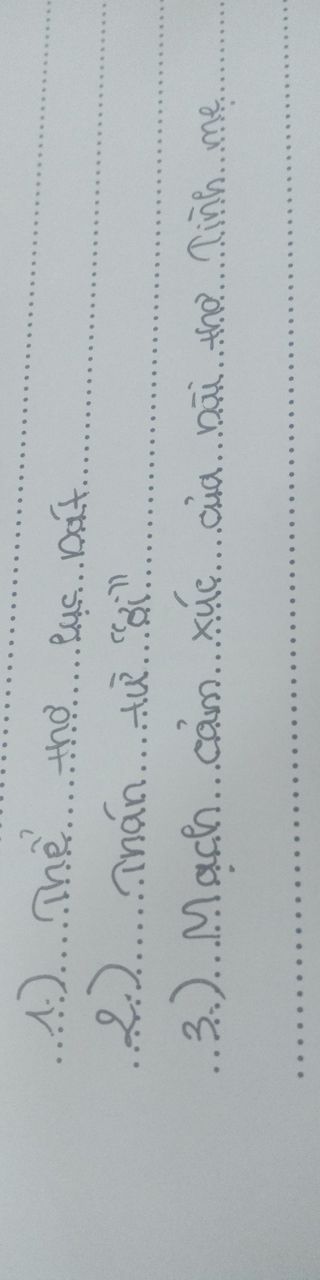 1.) Thể thơ lục bát
2.) Thán từ "ơi"
3.) Mạch cảm xúc của bài thơ Tình mẹ